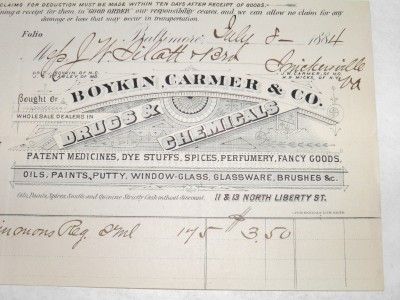 CLAIMS FOR DEDUCTION MUST BE MADE WITHIN TEN DAYS AFTER RECEIPT OF GOODS.
ing a receipt for them in "GOOD ORDER" our responsibility ceases, and we can allow no claim for any
damage or loss that may occur in transportation.
Folio
Baltimore, July 8 - 1884
J W & Bro
Snickersville
Va
BOYKIN OF N.C.
CARMER OF MD.
J.W. CARMER, OF MD.
Bought of
BOYKIN, CARMER & CO.
WHOLESALE DEALERS IN
DRUGS &
CHEMICALS
PATENT MEDICINES, DYE STUFFS, SPICES, PERFUMERY, FANCY GOODS,
OILS, PAINTS, PUTTY, WINDOW-GLASS, GLASSWARE, BRUSHES &c.
Oils, Paints, Spices, Snuffs and Quinine Strictly Cash without discount.
11 & 13 NORTH LIBERTY ST.
immons Reg 175 $3.50